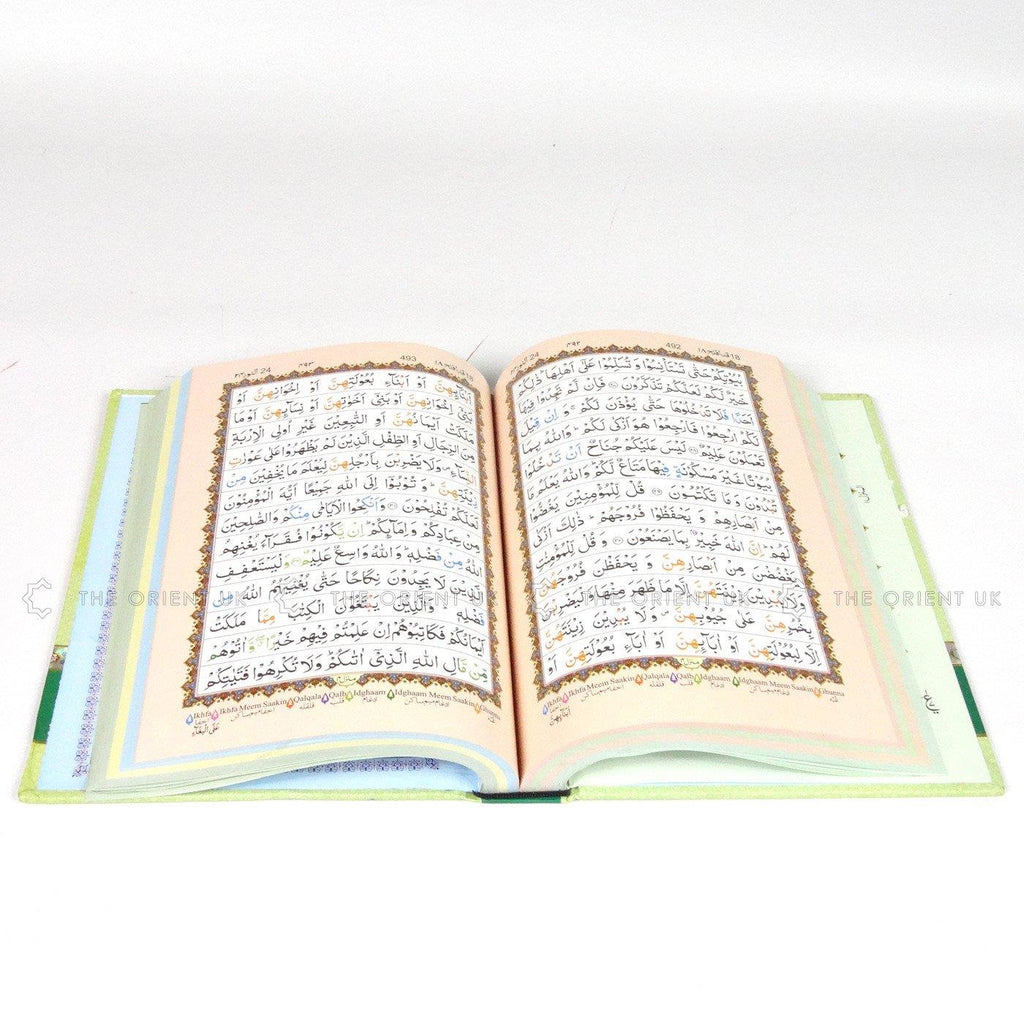 النور 24 ۴۹۲ 492 قد افلح 18
بُيُوْتِكُمْ حَتّٰى تَسْتَاْنِسُوْا وَ تُسَلِّمُوْا عَلٰٓى اَهْلِهَا ذٰلِكُمْ
خَيْرٌ لَّكُمْ لَعَلَّكُمْ تَذَكَّرُوْنَ ۝ فَاِنْ لَّمْ تَجِدُوْا فِيْهَاۤ
اَحَدًا فَلَا تَدْخُلُوْهَا حَتّٰى يُؤْذَنَ لَكُمْ ۚ وَ اِنْ قِيْلَ
لَكُمُ ارْجِعُوْا فَارْجِعُوْا هُوَ اَزْكٰى لَكُمْ ؕ وَاللّٰهُ بِمَا
تَعْمَلُوْنَ عَلِيْمٌ ۝ لَيْسَ عَلَيْكُمْ جُنَاحٌ اَنْ تَدْخُلُوْا
بُيُوْتًا غَيْرَ مَسْكُوْنَةٍ فِيْهَا مَتَاعٌ لَّكُمْ ؕ وَاللّٰهُ يَعْلَمُ مَا
تُبْدُوْنَ وَ مَا تَكْتُمُوْنَ ۝ قُلْ لِّلْمُؤْمِنِيْنَ يَغُضُّوْا
مِنْ اَبْصَارِهِمْ وَ يَحْفَظُوْا فُرُوْجَهُمْ ؕ ذٰلِكَ اَزْكٰى
لَهُمْ ؕ اِنَّ اللّٰهَ خَبِيْرٌۢ بِمَا يَصْنَعُوْنَ ۝ وَ قُلْ لِّلْمُؤْمِنٰتِ
يَغْضُضْنَ مِنْ اَبْصَارِهِنَّ وَ يَحْفَظْنَ فُرُوْجَهُنَّ
وَلَا يُبْدِيْنَ زِيْنَتَهُنَّ اِلَّا مَا ظَهَرَ مِنْهَا وَلْيَضْرِبْنَ
بِخُمُرِهِنَّ عَلٰى جُيُوْبِهِنَّ ۪ وَ لَا يُبْدِيْنَ زِيْنَتَهُنَّ
اِلَّا لِبُعُوْلَتِهِنَّ اَوْ اٰبَآئِهِنَّ اَوْ اٰبَآءِ بُعُوْلَتِهِنَّ اَوْ
Ikhfa Ikhfa Meem Saakin Qalqala Qalb Idghaam Idghaam Meem Saakin Ghunna
اَبْنَآئِهِنَّ
النور 24 ۴۹۳ 493 قد افلح 18
اَبْنَآئِهِنَّ اَوْ اَبْنَآءِ بُعُوْلَتِهِنَّ اَوْ اِخْوَانِهِنَّ اَوْ
بَنِيْۤ اِخْوَانِهِنَّ اَوْ بَنِيْۤ اَخَوٰتِهِنَّ اَوْ نِسَآئِهِنَّ اَوْ مَا
مَلَكَتْ اَيْمَانُهُنَّ اَوِ التّٰبِعِيْنَ غَيْرِ اُولِي الْاِرْبَةِ
مِنَ الرِّجَالِ اَوِ الطِّفْلِ الَّذِيْنَ لَمْ يَظْهَرُوْا عَلٰى عَوْرٰتِ
النِّسَآءِ ۪ وَلَا يَضْرِبْنَ بِاَرْجُلِهِنَّ لِيُعْلَمَ مَا يُخْفِيْنَ مِنْ
زِيْنَتِهِنَّ ؕ وَ تُوْبُوْۤا اِلَى اللّٰهِ جَمِيْعًا اَيُّهَ الْمُؤْمِنُوْنَ
لَعَلَّكُمْ تُفْلِحُوْنَ ۝ وَاَنْكِحُوا الْاَيَامٰى مِنْكُمْ وَالصّٰلِحِيْنَ
مِنْ عِبَادِكُمْ وَ اِمَآئِكُمْ ؕ اِنْ يَّكُوْنُوْا فُقَرَآءَ يُغْنِهِمُ
اللّٰهُ مِنْ فَضْلِهٖ ؕ وَ اللّٰهُ وَاسِعٌ عَلِيْمٌ ۝ وَلْيَسْتَعْفِفِ
الَّذِيْنَ لَا يَجِدُوْنَ نِكَاحًا حَتّٰى يُغْنِيَهُمُ اللّٰهُ مِنْ
فَضْلِهٖ ؕ وَالَّذِيْنَ يَبْتَغُوْنَ الْكِتٰبَ مِمَّا مَلَكَتْ
اَيْمَانُكُمْ فَكَاتِبُوْهُمْ اِنْ عَلِمْتُمْ فِيْهِمْ خَيْرًا ۖ وَّ اٰتُوْهُمْ
مِّنْ مَّالِ اللّٰهِ الَّذِيْۤ اٰتٰىكُمْ ؕ وَلَا تُكْرِهُوْا فَتَيٰتِكُمْ
Ikhfa Ikhfa Meem Saakin Qalqala Qalb Idghaam Idghaam Meem Saakin Ghunna
عَلَى الْبِغَآءِ
THE ORIENT UK THE ORIENT UK THE ORIENT UK THE ORIENT UK